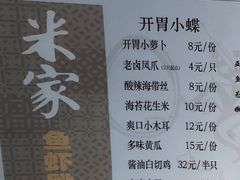 米家
鱼虾
开胃小蝶
开胃小萝卜 8元/份
老卤凤爪(2只起点) 4元/只
酸辣海带丝 8元/份
海苔花生米 10元/份
爽口小木耳 12元/份
多味黄瓜 15元/份
酱油白切鸡 32元/半只